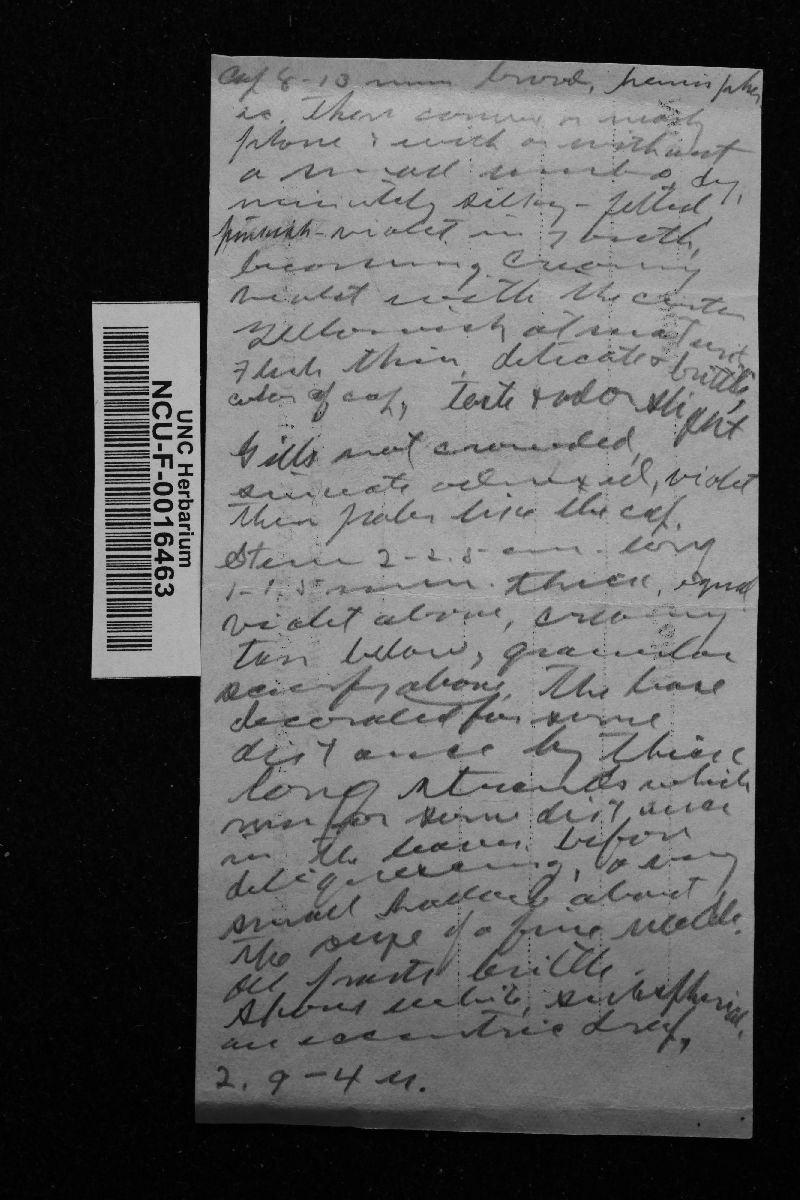 Cap 8-10 mm broad, hemispher
ic, then convex or nearly
plane & with or without
a small umbo, dry,
minutely silky-felted,
pinkish-violet in youth,
becoming creamy
violet with the center
yellowish at maturity
Flesh thin, delicate & brittle,
color of cap, taste & odor slight
Gills not crowded,
sinuate adnexed, violet
then paler like the cap.
Stem 2-2.5 cm. long
1-1.5 mm. thick, equal
violet above, creamy
tan below, granular
scurfy above, the base
decorated for some
distance by thick
long strands which
run for some distance
in the leaves before
deliquescing, a very
small hollow about
the size of a fine needle.
All parts brittle.
Spores white, subspherical,
an eccentric drop,
2.9-4 u.
UNC Herbarium
NCU-F-0016463